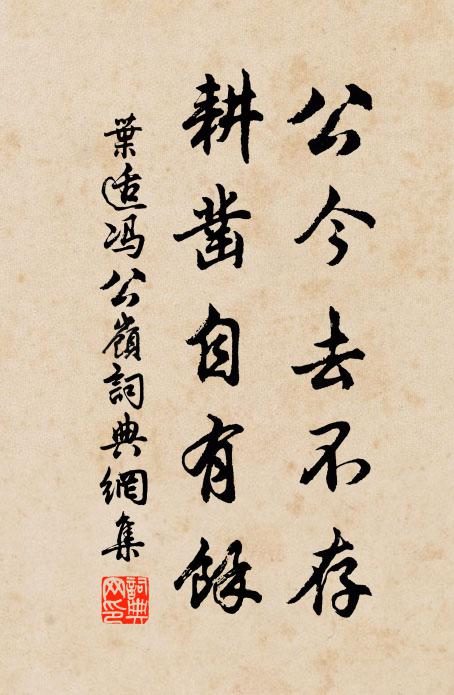 公今去不存
耕凿自有餘
葉适冯公嶺詞典網集
詞典网印